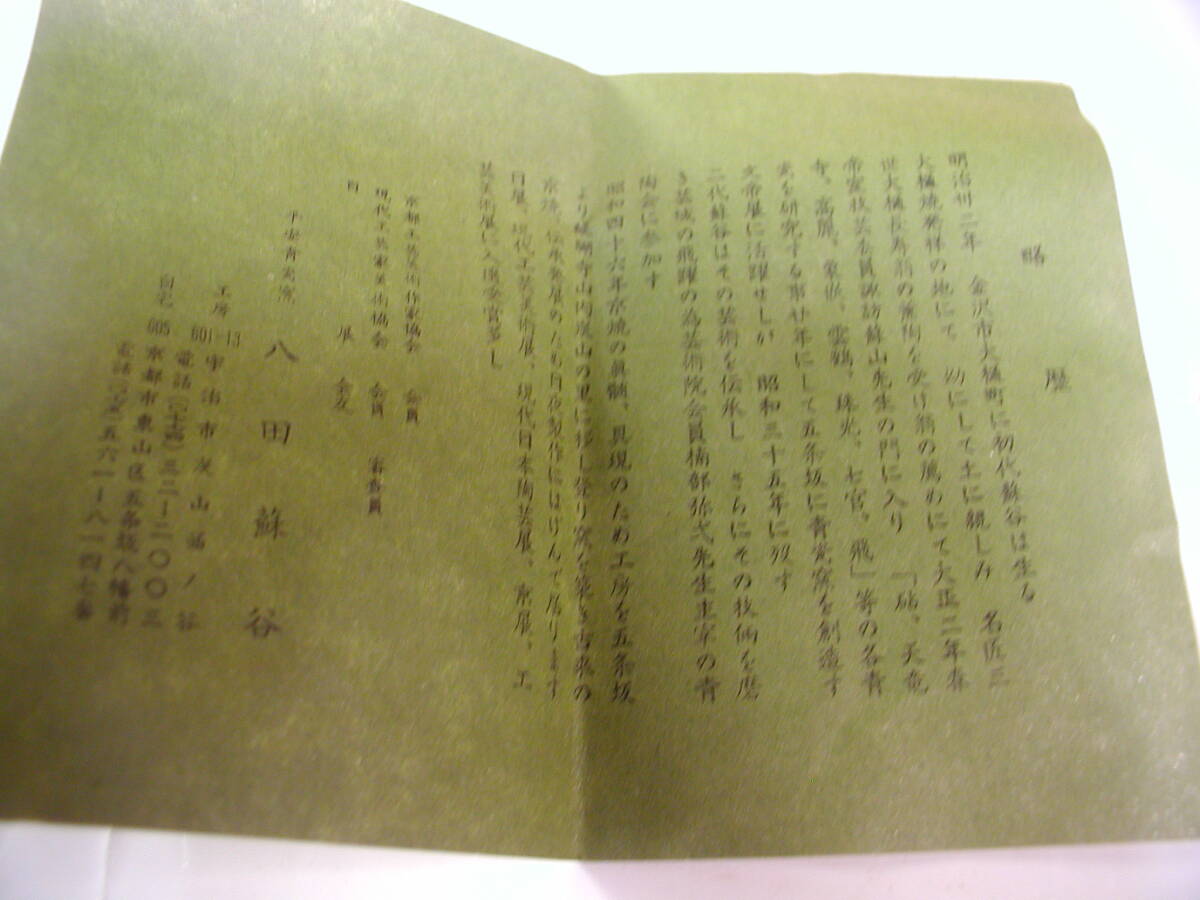 略歴
明治卅二年 金沢市大樋町に初代蘇谷は生る
大樋焼発祥の地にて 幼にして土に親しみ 名匠三
世大樋長寿翁の薫陶を受け翁の薦めにて大正二年春
帝室技芸委員諏訪蘇山先生の門に入り 「砧、天竜
寺、高麗、象嵌、雲鶴、珠光、七官、飛」等の各青
瓷を研究する事廿年にして五条坂に青瓷窯を創造す
文帝展に活躍せしが 昭和三十五年に歿す
二代蘇谷はその芸術を伝承し さらにその技倆を磨
き芸域の飛躍の為芸術院会員楠部弥弌先生主宰の青
陶会に参加す
昭和四十六年京焼の真髄、具現のため工房を五条坂
より醍醐寺山内炭山の里に移し登り窯を築き古来の
京焼、伝承発展のため日夜製作にはげんで居ります
日展、現代工芸美術展、現代日本陶芸展、京展、工
芸美術展に入選受賞多し
京都工芸美術作家協会 会員
現代工芸家美術協会 会員 審査員
日展 会友
平安青瓷窯
八田蘇谷
工房 601-13 宇治市炭山
電話(〇七七四)三二ー二〇〇三
自宅 605 京都市東山区五条坂八幡前
電話〇七五 五六一ー八一四七番